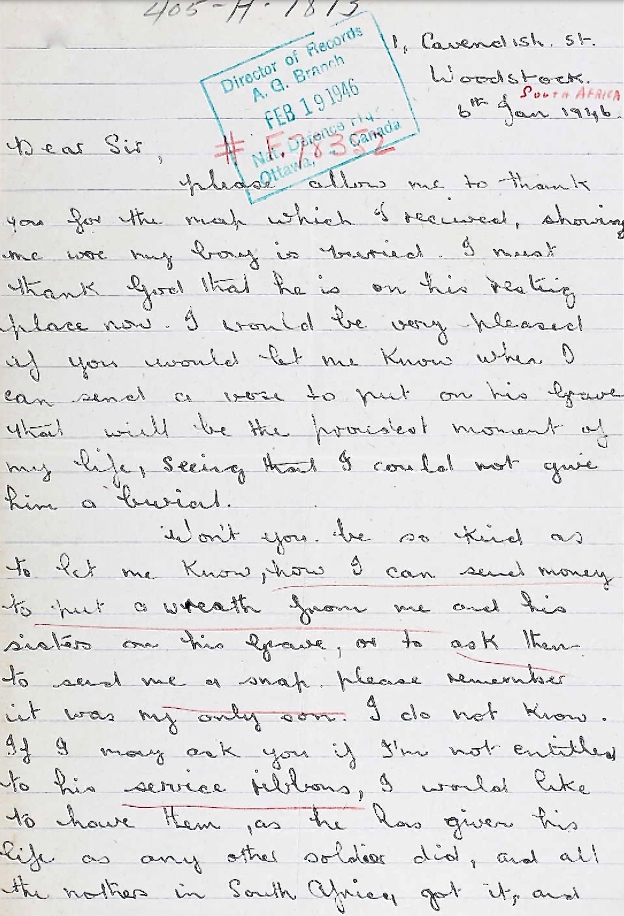 405-H-1813
1, Cavendish. St.
Woodstock.
SOUTH AFRICA
6th Jan 1946.
Director of Records
A. G. Branch
FEB 19 1946
Nat. Defence
Ottawa, Canada
# F.78352
Dear Sir,
please allow me to thank
you for the map which I recived, showing
me wor my boy is buried. I must
thank God that he is on his resting
place now. I would be very pleased
if you would let me know when I
can send a vose to put on his grave
that will be the proudest moment of
my life, seeing that I could not give
him a burial.
Won't you be so kind as
to let me know, how I can send money
to put a wreath from me and his
sisters on his grave, or to ask them
to send me a snap. please remember
it was my only son. I do not know.
If I may ask you if I'm not entitled
to his service ribbons, I would like
to have them, as he has given his
life as any other soldier did, and all
the mothers in South Africa got it, and